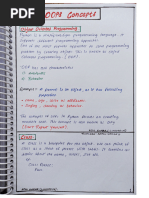 OOPs Concepts
Object Oriented Programming
Python is a multi-paradigm programming language. It
supports different programming approaches.
One of the most popular approaches to solve programming
problem is by creating objects.
OOP has two characteristics:
1) Attributes
2) Behavior
Example - A parrot can be object, as it has following
properties:
- name, age, color as attributes.
- singing, dancing as behavior.
The concept of OOP in Python focuses on creating
reusable code. This concept is also known as DRY
(Don't Repeat yourself).
Class
A Class is a blueprint for the object. We can think of
class as a sketch of parrot with labels. It contains all
details about the name, colors, size etc.
ex:
class Parrot:
Pass